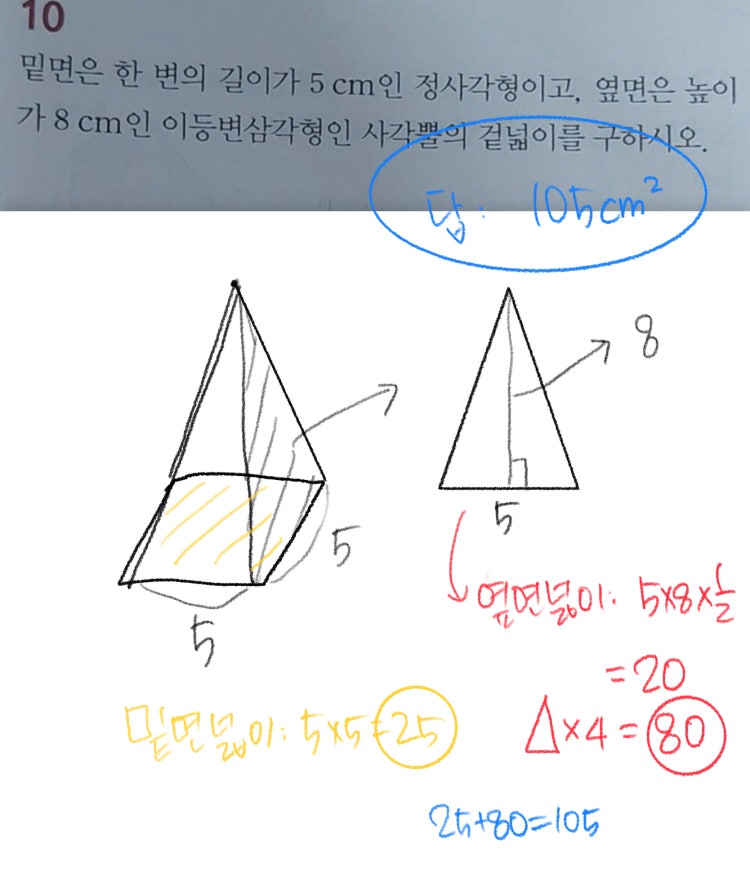 10
밑면은 한 변의 길이가 5 cm인 정사각형이고, 옆면은 높이
가 8 cm인 이등변삼각형인 사각뿔의 겉넓이를 구하시오.
답: 105cm²
8
5
5
5
옆면넓이: 5×8×1/2
=20
밑면넓이: 5×5=25
△×4=80
25+80=105